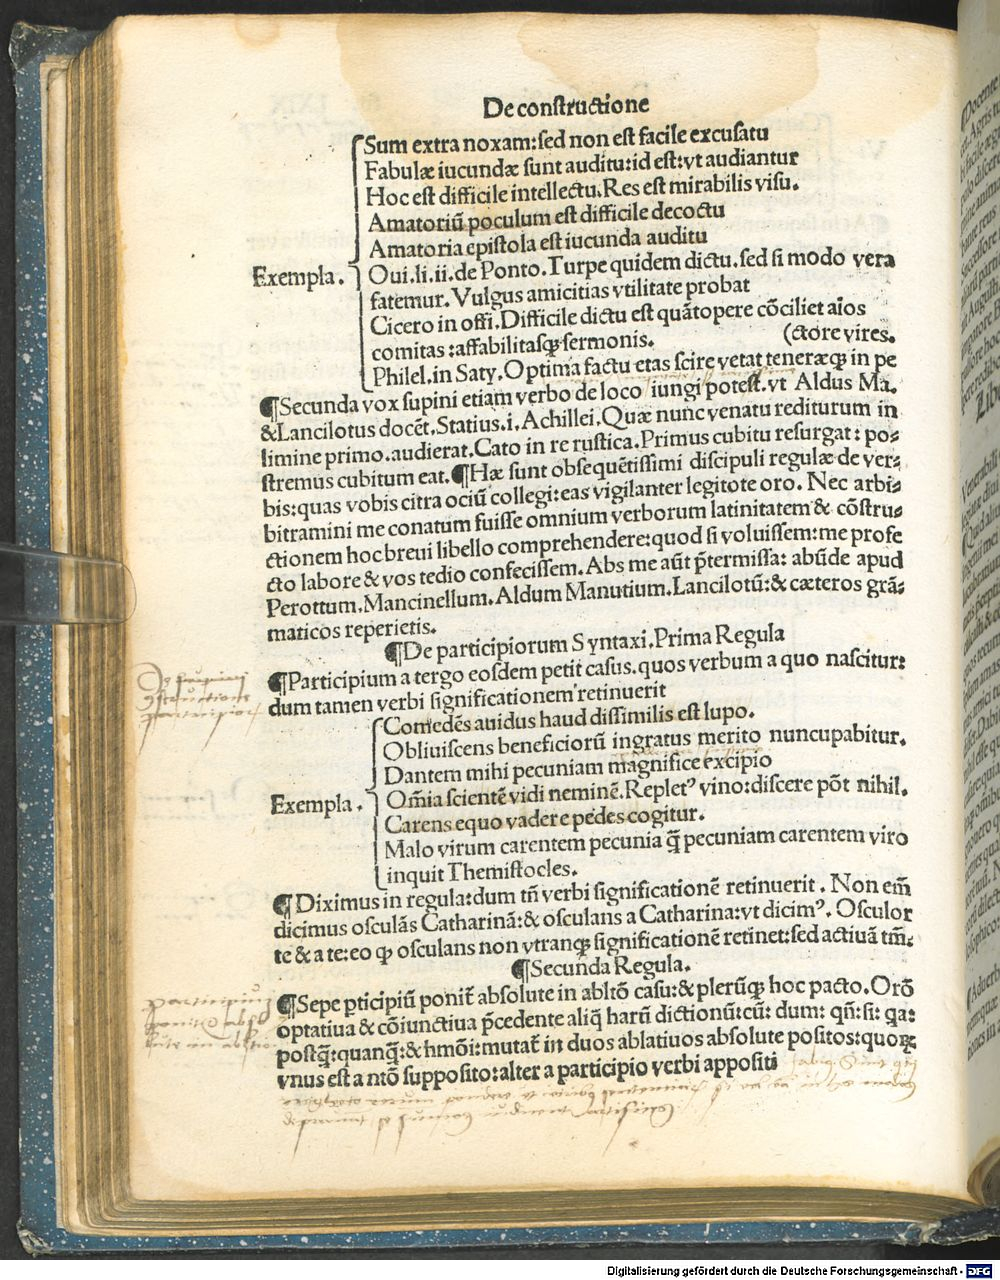 De constructione
Sum extra noxam: sed non est facile excusatu
Fabulæ iucundæ sunt auditu: id est: vt audiantur
Hoc est difficile intellectu. Res est mirabilis visu.
Amatoriū poculum est difficile decoctu
Amatoria epistola est iucunda auditu
Exempla. Oui. li. ii. de Ponto. Turpe quidem dictu. sed si modo vera
fatemur. Vulgus amicitias vtilitate probat
Cicero in offi. Difficile dictu est quātopere cōciliet aīos
comitas: affabilitasqꝫ sermonis. (ctore vires.
Philel. in Saty. Optima factu etas scire vetat teneræqꝫ in pe
¶Secunda vox supini etiam verbo de loco iungi potest. vt Aldus Ma.
&Lancilotus docēt. Statius. i. Achillei. Quæ nunc venatu rediturum in
limine primo. audierat. Cato in re rustica. Primus cubitu resurgat: po⸗
stremus cubitum eat. ¶Hæ sunt obsequētissimi discipuli regulæ de ver⸗
bis: quas vobis citra ociū collegi: eas vigilanter legitote oro. Nec arbi⸗
bitramini me conatum fuisse omnium verborum latinitatem & cōstru⸗
ctionem hoc breui libello comprehendere: quod si voluissem: me profe
cto labore & vos tedio confecissem. Abs me aūt p̄termissa: abūde apud
Perottum. Mancinellum. Aldum Manutium. Lancilotū: & cæteros grā⸗
maticos reperietis.
¶De participiorum Syntaxi. Prima Regula
¶Participium a tergo eosdem petit casus. quos verbum a quo nascitur:
dum tamen verbi significationem retinuerit
Comedēs auidus haud dissimilis est lupo.
Obliuiscens beneficiorū ingratus merito nuncupabitur.
Dantem mihi pecuniam magnifice excipio
Exempla. Oīa scientē vidi neminē. Replet⁹ vino: discere pōt nihil.
Carens equo vadere pedes cogitur.
Malo virum carentem pecunia q̄ pecuniam carentem viro
inquit Themistocles.
¶Diximus in regula: dum tn̄ verbi significationē retinuerit. Non em̄
dicimus osculās Catharinā: & osculans a Catharina: vt dicim⁹. Osculor
te & a te: eo qꝫ osculans non vtranqꝫ significationē retinet: sed actiuā tm̄.
¶Secunda Regula.
¶Sepe pticipiū ponit̄ absolute in abltō casu: & plerūqꝫ hoc pacto. Orō
optatiua & cōiunctiua p̄cedente aliq̄ harū dictionū: cū: dum: qn̄: si: qa:
postq̄: quanq̄: & hmōi: mutat̄ in duos ablatiuos absolute positos: quoꝝ
vnus est a ntō supposito: alter a participio verbi appositi